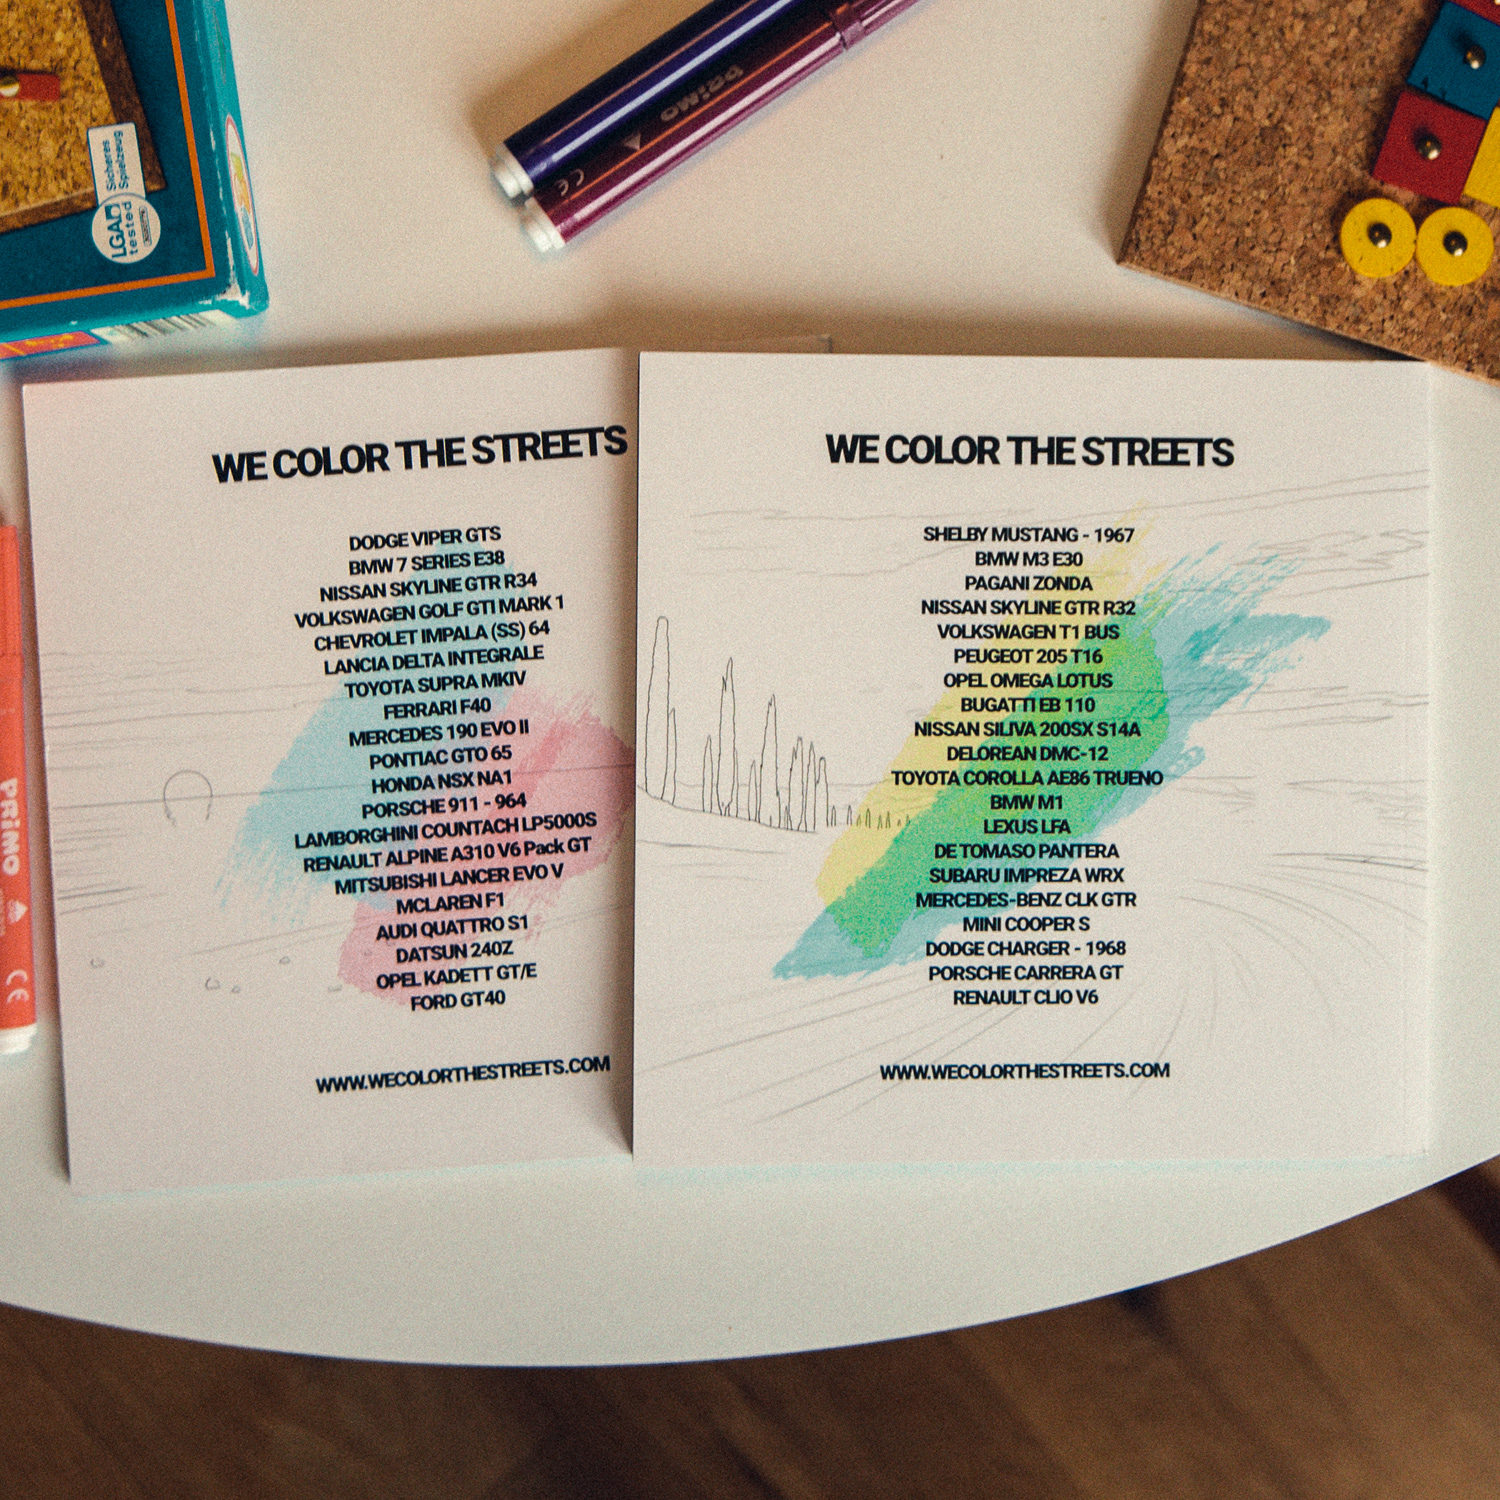 Sicheres
Spielzeug
LGA
tested
PRIMO
CE
PRIMO
CE
WE COLOR THE STREETS
DODGE VIPER GTS
BMW 7 SERIES E38
NISSAN SKYLINE GTR R34
VOLKSWAGEN GOLF GTI MARK 1
CHEVROLET IMPALA (SS) 64
LANCIA DELTA INTEGRALE
TOYOTA SUPRA MKIV
FERRARI F40
MERCEDES 190 EVO II
PONTIAC GTO 65
HONDA NSX NA1
PORSCHE 911 - 964
LAMBORGHINI COUNTACH LP5000S
RENAULT ALPINE A310 V6 Pack GT
MITSUBISHI LANCER EVO V
MCLAREN F1
AUDI QUATTRO S1
DATSUN 240Z
OPEL KADETT GT/E
FORD GT40
WWW.WECOLORTHESTREETS.COM
WE COLOR THE STREETS
SHELBY MUSTANG - 1967
BMW M3 E30
PAGANI ZONDA
NISSAN SKYLINE GTR R32
VOLKSWAGEN T1 BUS
PEUGEOT 205 T16
OPEL OMEGA LOTUS
BUGATTI EB 110
NISSAN SILIVA 200SX S14A
DELOREAN DMC-12
TOYOTA COROLLA AE86 TRUENO
BMW M1
LEXUS LFA
DE TOMASO PANTERA
SUBARU IMPREZA WRX
MERCEDES-BENZ CLK GTR
MINI COOPER S
DODGE CHARGER - 1968
PORSCHE CARRERA GT
RENAULT CLIO V6
WWW.WECOLORTHESTREETS.COM